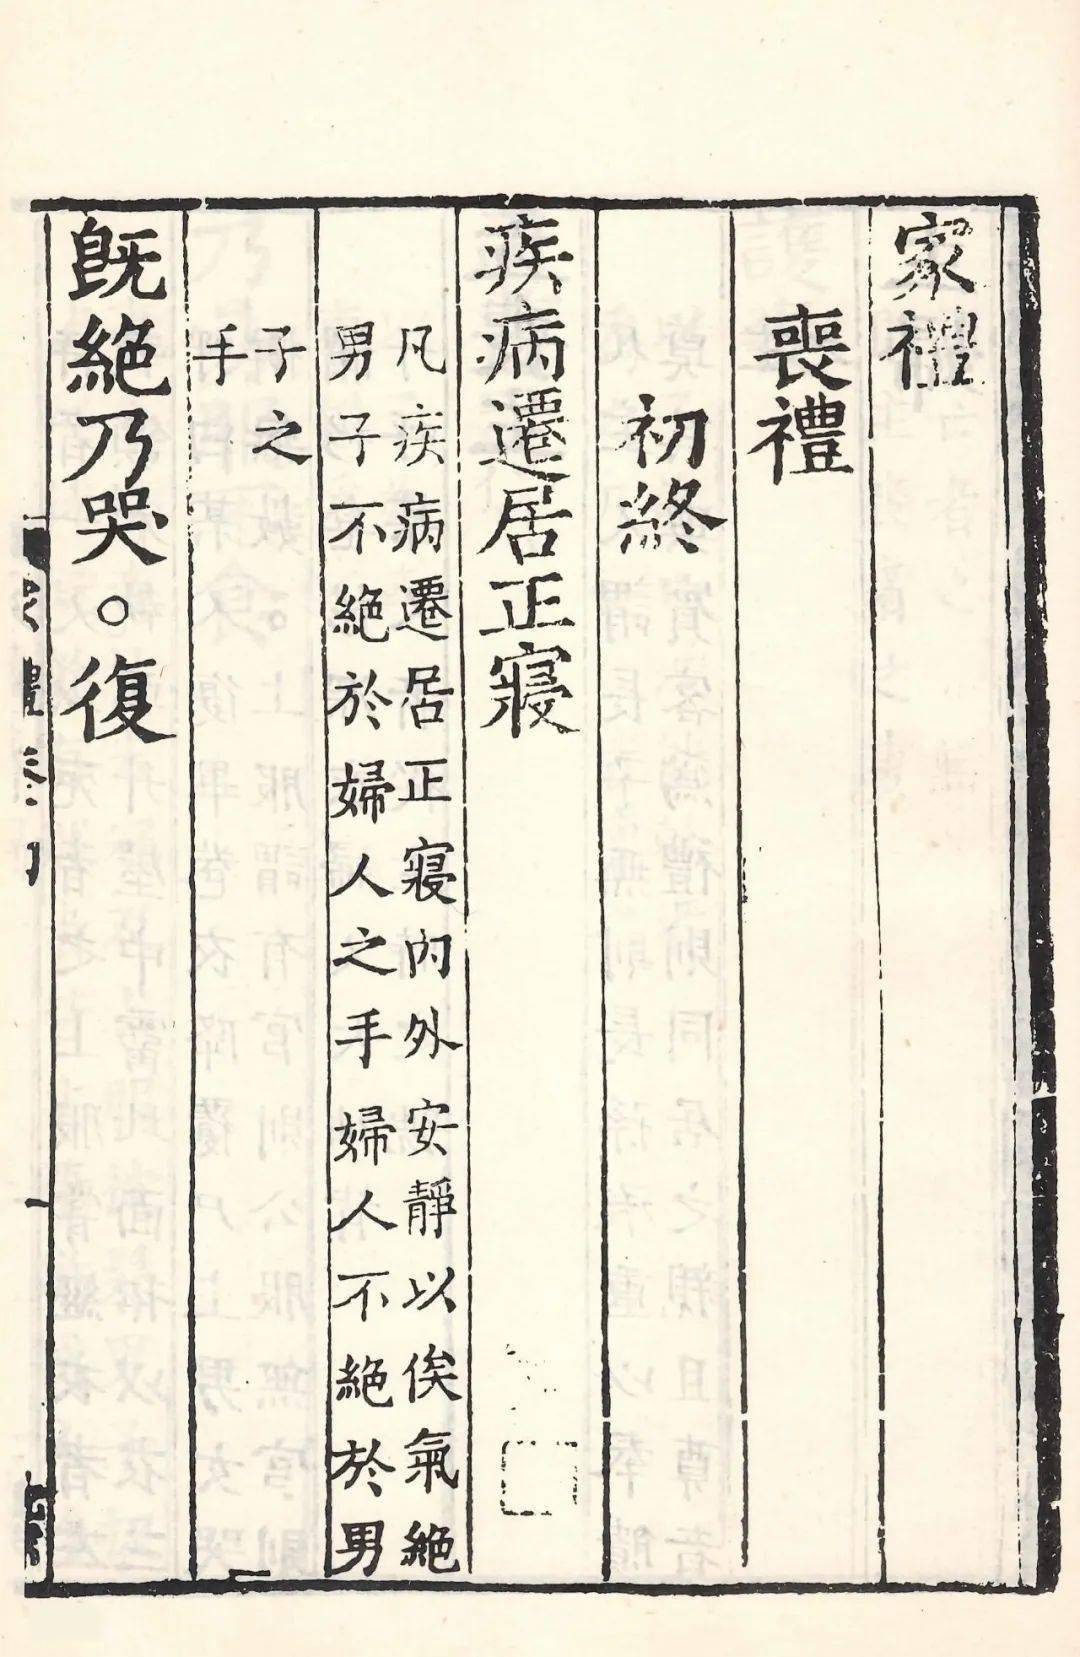 家禮
喪禮
初終
疾病遷居正寢
凡疾病遷居正寢內外安靜以俟氣絶
男子不絶於婦人之手婦人不絶於男
子之
手
旣絶乃哭。復
家禮卷四
一